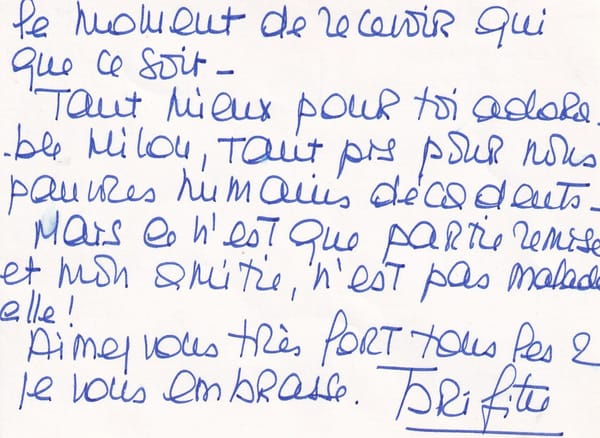 le moment de recevoir qui
que ce soit –
Tant mieux pour toi adora.
.ble Milou, Tant pis pour nous
pauvres humains décadents –
Mais ce n'est que partie remise
et mon amitié, n'est pas malade
elle !
Aimez vous très fort tous les 2
je vous embrasse. Brigitte